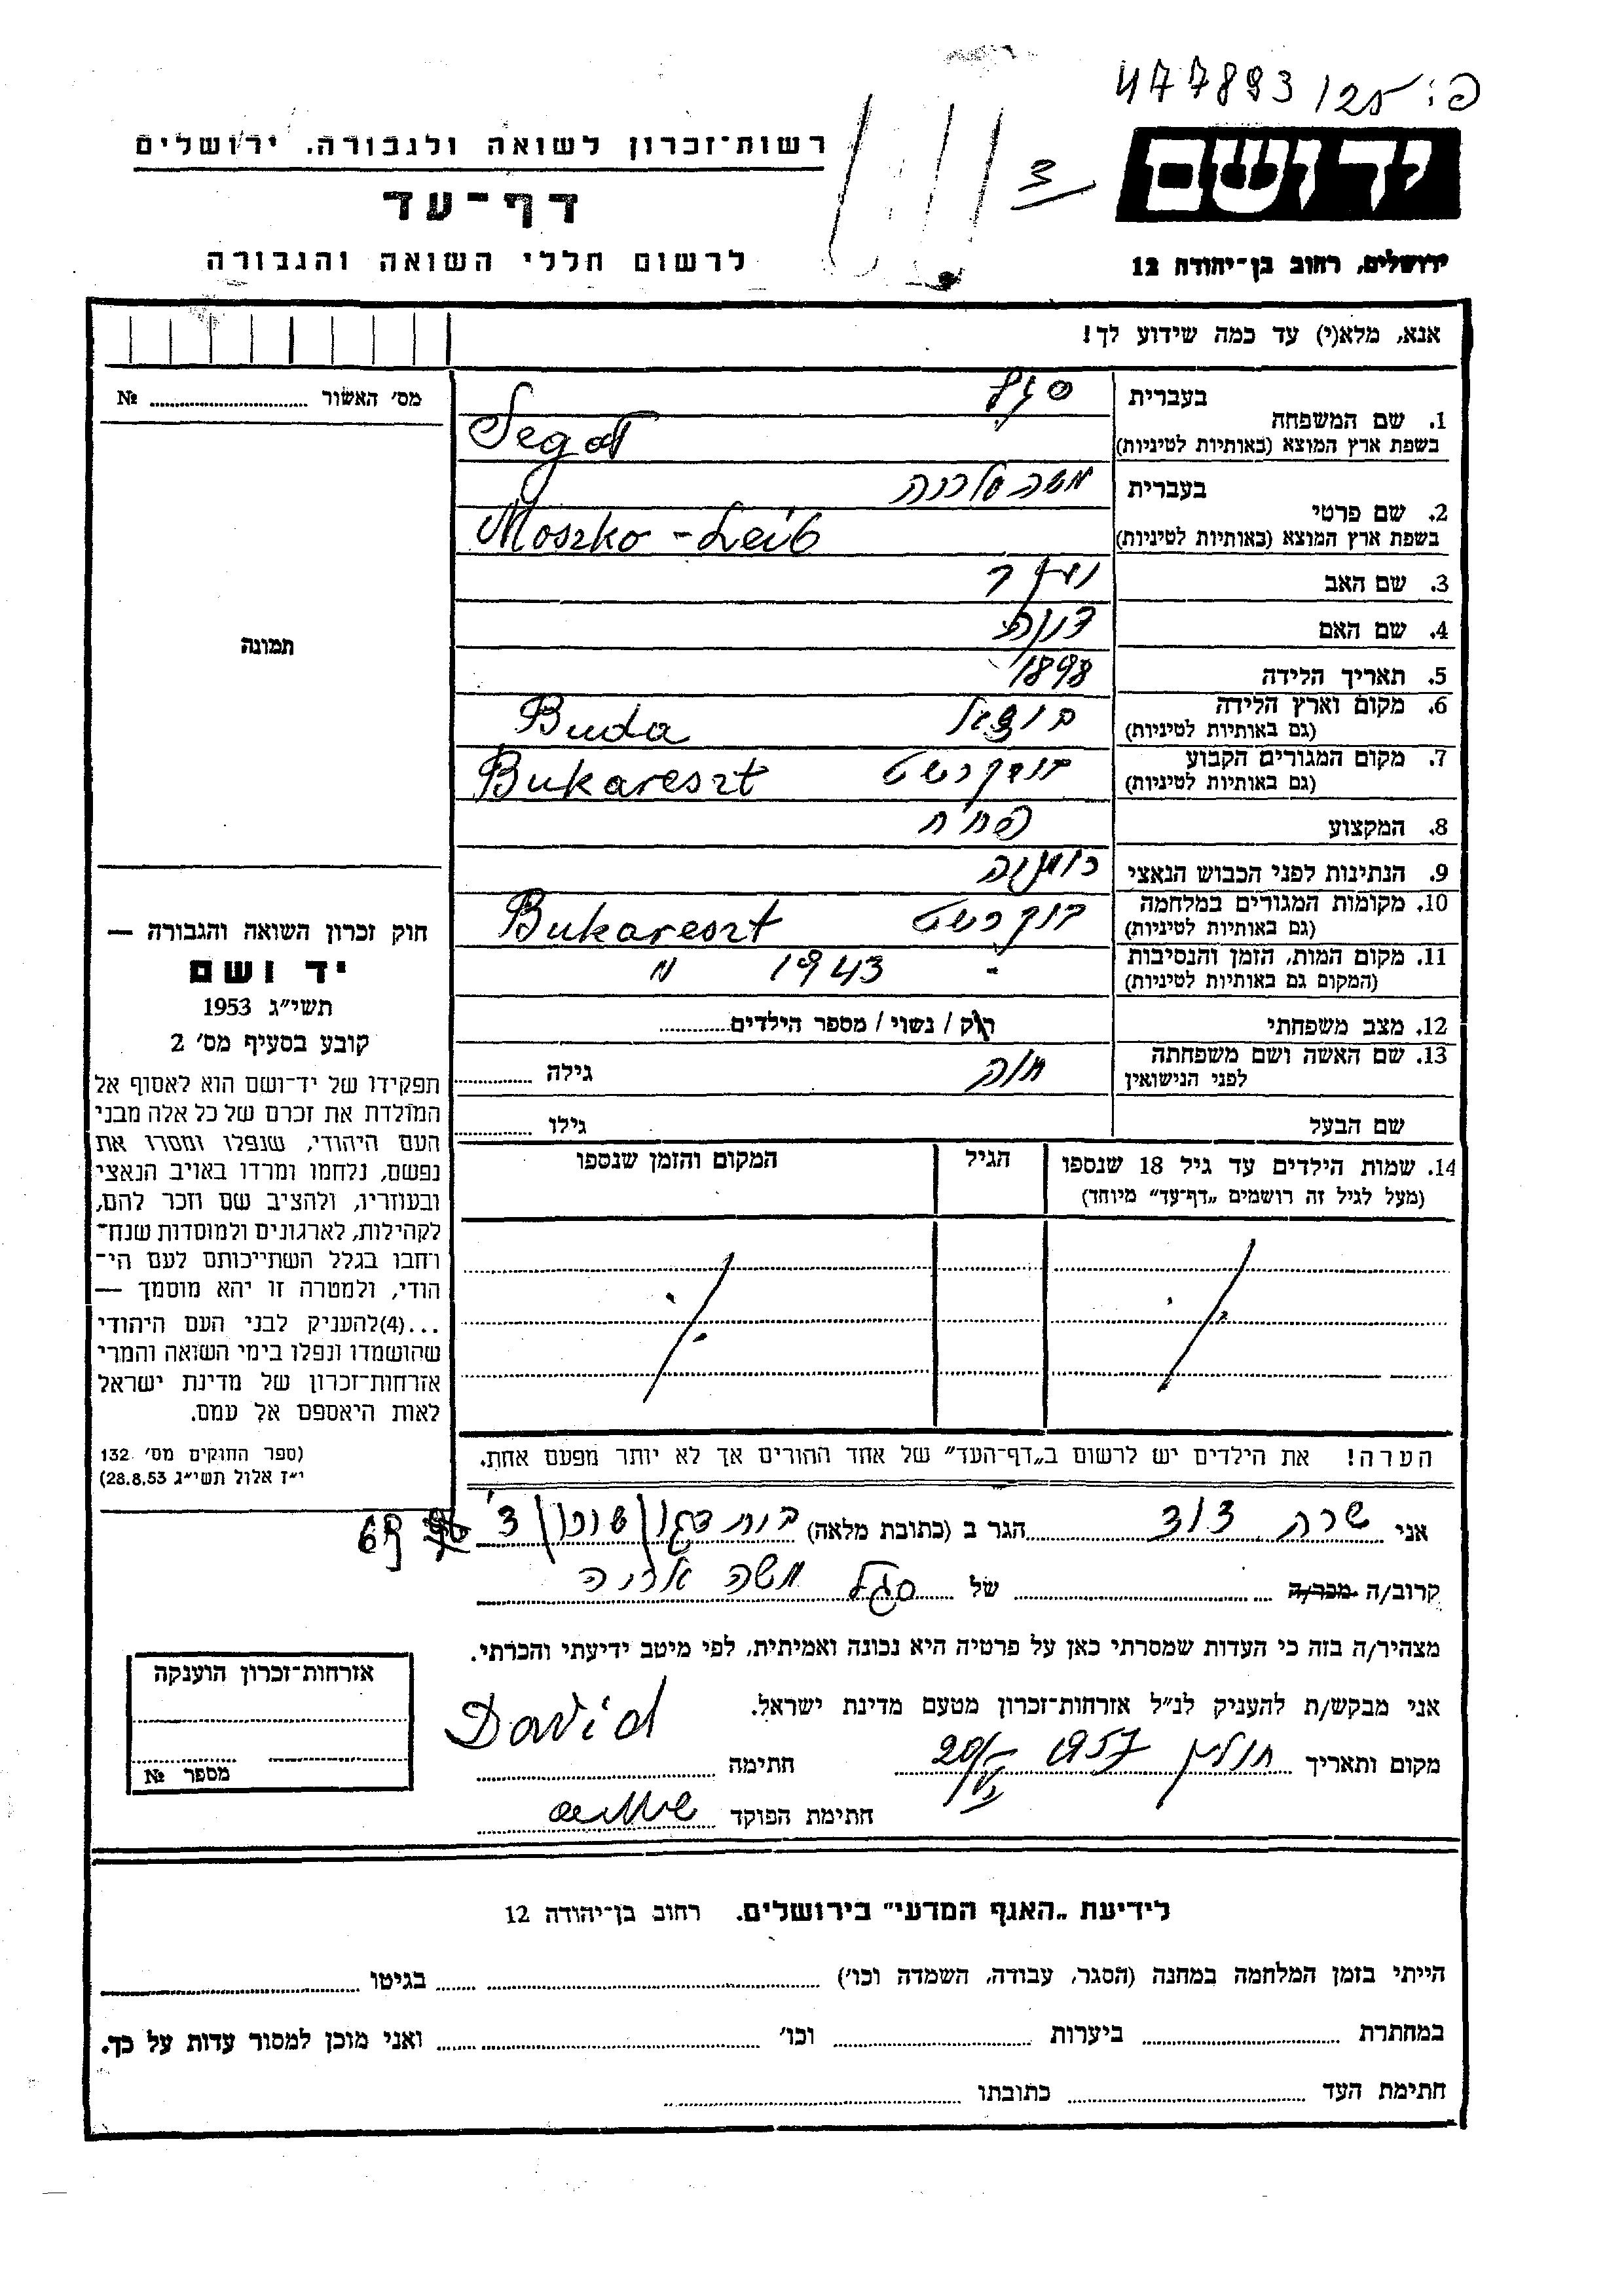 פ: 477893/25
יד ושם
ירושלים, רחוב בן־יהודה 12
רשות־זכרון לשואה ולגבורה. ירושלים
דף־עד
לרשום חללי השואה והגבורה
אנא, מלא(י) עד כמה שידוע לך!
מס׳ האשור № ........
1. שם המשפחה
בעברית סגל
בשפת ארץ המוצא (באותיות לטיניות) Segal
2. שם פרטי
בעברית משה
בשפת ארץ המוצא (באותיות לטיניות) Moszko - Leib
3. שם האב
4. שם האם
5. תאריך הלידה 1898
6. מקום וארץ הלידה
(גם באותיות לטיניות) Buda
7. מקום המגורים הקבוע
(גם באותיות לטיניות) Bukareszt
8. המקצוע
9. הנתינות לפני הכבוש הנאצי
10. מקומות המגורים במלחמה בוקרשט
(גם באותיות לטיניות) Bukareszt
11. מקום המות, הזמן והנסיבות
(המקום גם באותיות לטיניות) 1943 "
12. מצב משפחתי רוק / נשוי / מספר הילדים........
13. שם האשה ושם משפחתה
לפני הנישואין חוה גילה ........
שם הבעל גילו ........
14. שמות הילדים עד גיל 18 שנספו הגיל המקום והזמן שנספו
(מעל לגיל זה רושמים „דף־עד” מיוחד)
הערה! את הילדים יש לרשום ב„דף־העד” של אחד ההורים אך לא יותר מפעם אחת.
תמונה
חוק זכרון השואה והגבורה —
יד ושם
תשי״ג 1953
קובע בסעיף מס׳ 2
תפקידו של יד־ושם הוא לאסוף אל
המולדת את זכרם של כל אלה מבני
העם היהודי, שנפלו ומסרו את
נפשם, נלחמו ומרדו באויב הנאצי
ובעוזריו, ולהציב שם וזכר להם,
לקהילות, לארגונים ולמוסדות שנח־
רחבו בגלל השתייכותם לעם הי־
הודי, ולמטרה זו יהא מוסמך —
...(4)להעניק לבני העם היהודי
שהושמדו ונפלו בימי השואה והמרי
אזרחות־זכרון של מדינת ישראל
לאות היאספם אל עמם.
(ספר החוקים מס׳ 132
י״ז אלול תשי״ג 28.8.53)
אני שרה דוד הגר ב (כתובת מלאה) בית דגן שיכון ג' 69
קרוב/ה מכר/ה ........ של סגל משה אריה
מצהיר/ה בזה כי העדות שמסרתי כאן על פרטיה היא נכונה ואמיתית, לפי מיטב ידיעתי והכרתי.
אני מבקש/ת להעניק לנ״ל אזרחות־זכרון מטעם מדינת ישראל.
מקום ותאריך חולון 1957 חתימה David
חתימת הפוקד
אזרחות־זכרון הוענקה
מספר №
לידיעת „האגף המדעי” בירושלים. רחוב בן־יהודה 12
הייתי בזמן המלחמה במחנה (הסגר, עבודה, השמדה וכו׳) ........ בגיטו ........
במחתרת ........ ביערות ........ וכו׳ ........ ואני מוכן למסור עדות על כך.
חתימת העד ........ כתובתו ........